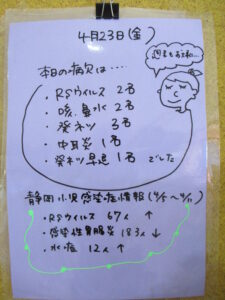 4月23日(金)
週末もお大事に…
本日の病欠は・・・・
・RSウイルス 2名
・咳、鼻水 2名
・発ネツ 3名
・中耳炎 1名
・発ネツ早退 1名 でした
静岡小児感染症情報(4/5〜4/11)
・RSウイルス 67人 ↑
・感染性胃腸炎 183人 ↓
・水痘 12人 ↑